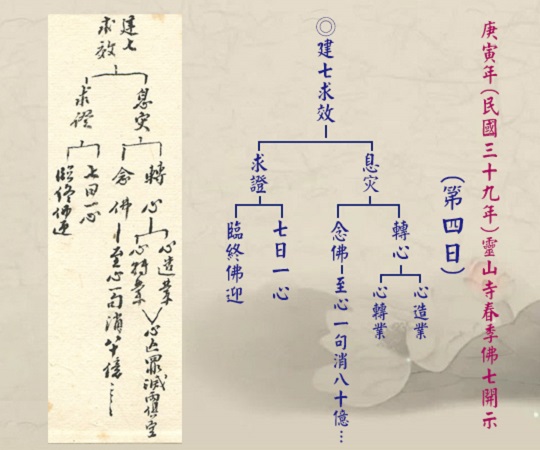 庚寅年(民國三十九年)靈山寺春季佛七開示
(第四日)
◎建七求效
息灾
轉心
心造業
心轉業
念佛─至心一句消八十億…
求證
七日一心
臨終佛迎
建七
求效
息灾
轉心
心造業
心轉業
心亡罪滅兩俱空
念佛─至心一句消八十億…
求證
七日一心
臨終佛迎